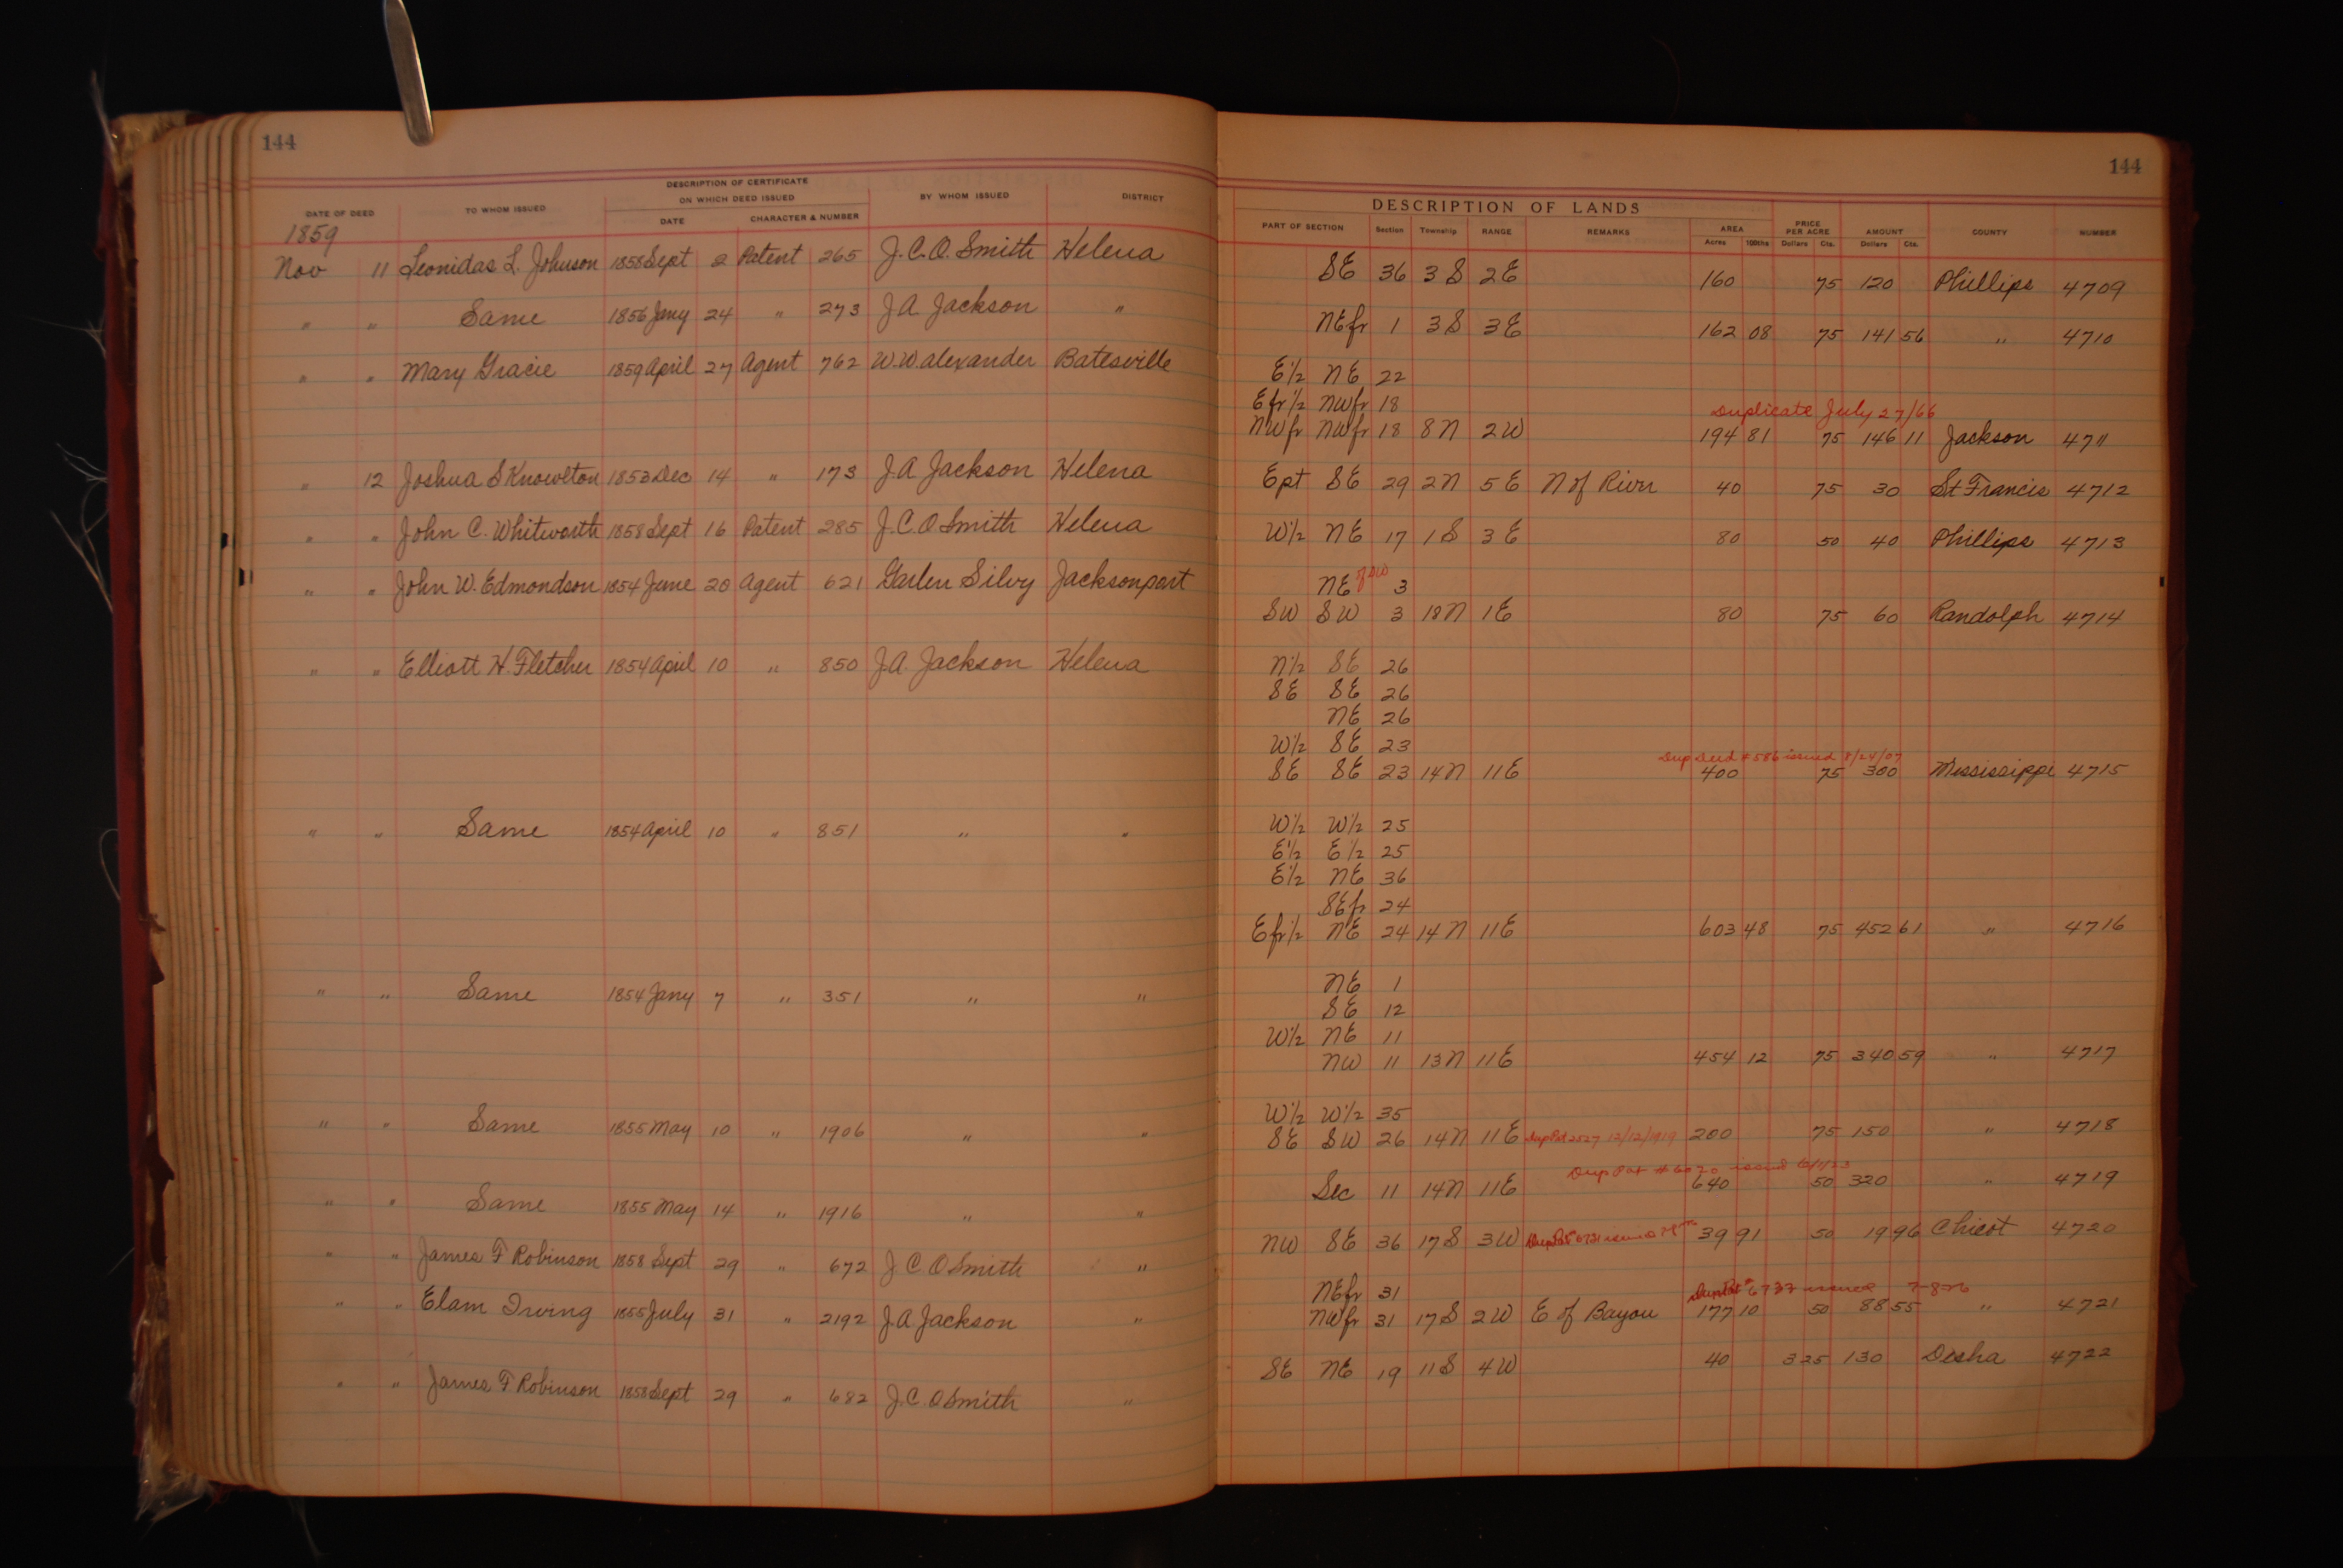 144
DESCRIPTION OF CERTIFICATE
ON WHICH DEED ISSUED
DATE OF DEED TO WHOM ISSUED DATE CHARACTER & NUMBER BY WHOM ISSUED DISTRICT
1859
Nov 11 Leonidas L. Johnson 1858 Sept 2 Patent 265 J.C.O. Smith Helena
" " Same 1856 Jany 24 " 273 J A Jackson "
" " Mary Gracie 1859 April 27 Agent 762 W.W. alexander Batesville
" 12 Joshua S Knowlton 1853 Dec 14 " 173 J.A Jackson Helena
" " John C. Whitworth 1858 Sept 16 Patent 285 J.C.O Smith Helena
" " John W. Edmondson 1854 June 20 Agent 621 Garlen Silvy Jacksonport
" " Elliott H. Fletcher 1854 April 10 " 850 J.A. Jackson Helena
" " Same 1854 April 10 " 851 " "
" " Same 1854 Jany 7 " 351 " "
" " Same 1855 May 10 " 1906 " "
" " Same 1855 May 14 " 1916 " "
" " James F Robinson 1858 Sept 29 " 672 J C O Smith "
" " Elam Irving 1855 July 31 " 2192 J.A Jackson "
" " James F Robinson 1858 Sept 29 " 682 J.C. O Smith "
144
DESCRIPTION OF LANDS
PART OF SECTION Section Township RANGE REMARKS AREA PRICE PER ACRE AMOUNT COUNTY NUMBER
Acres 100ths Dollars Cts. Dollars Cts.
SE 36 3 S 2 E 160 75 120 Phillips 4709
NE fr 1 3 S 3 E 162 08 75 141 56 " 4710
E 1/2 NE 22
E fr 1/2 NW fr 18
Duplicate July 27/66
NW fr NW fr 18 8 N 2 W 194 81 75 146 11 Jackson 4711
E pt SE 29 2 N 5 E N of River 40 75 30 St Francis 4712
W 1/2 NE 17 1 S 3 E 80 50 40 Phillips 4713
NE of SW 3
SW SW 3 18 N 1 E 80 75 60 Randolph 4714
N 1/2 SE 26
SE SE 26
NE 26
W 1/2 SE 23
Dup Deed # 586 issued 8/24/07
SE SE 23 14 N 11 E 400 75 300 Mississippi 4715
W 1/2 W 1/2 25
E 1/2 E 1/2 25
E 1/2 NE 36
SE fr 24
E fr 1/2 NE 24 14 N 11 E 603 48 75 452 61 " 4716
NE 1
SE 12
W 1/2 NE 11
NW 11 13 N 11 E 454 12 75 340 59 " 4717
W 1/2 W 1/2 35
SE SW 26 14 N 11 E Dup Pat 2527 12/12/1919 200 75 150 " 4718
Dup Pat # issued
Sec 11 14 N 11 E 640 50 320 " 4719
NW SE 36 17 S 3 W Dup Pat issued 39 91 50 19 96 Chicot 4720
NE fr 31
Dup Pat # 6737 issued
NW fr 31 17 S 2 W E of Bayou 177 10 50 88 55 " 4721
SE NE 19 11 S 4 W 40 3 25 130 Desha 4722